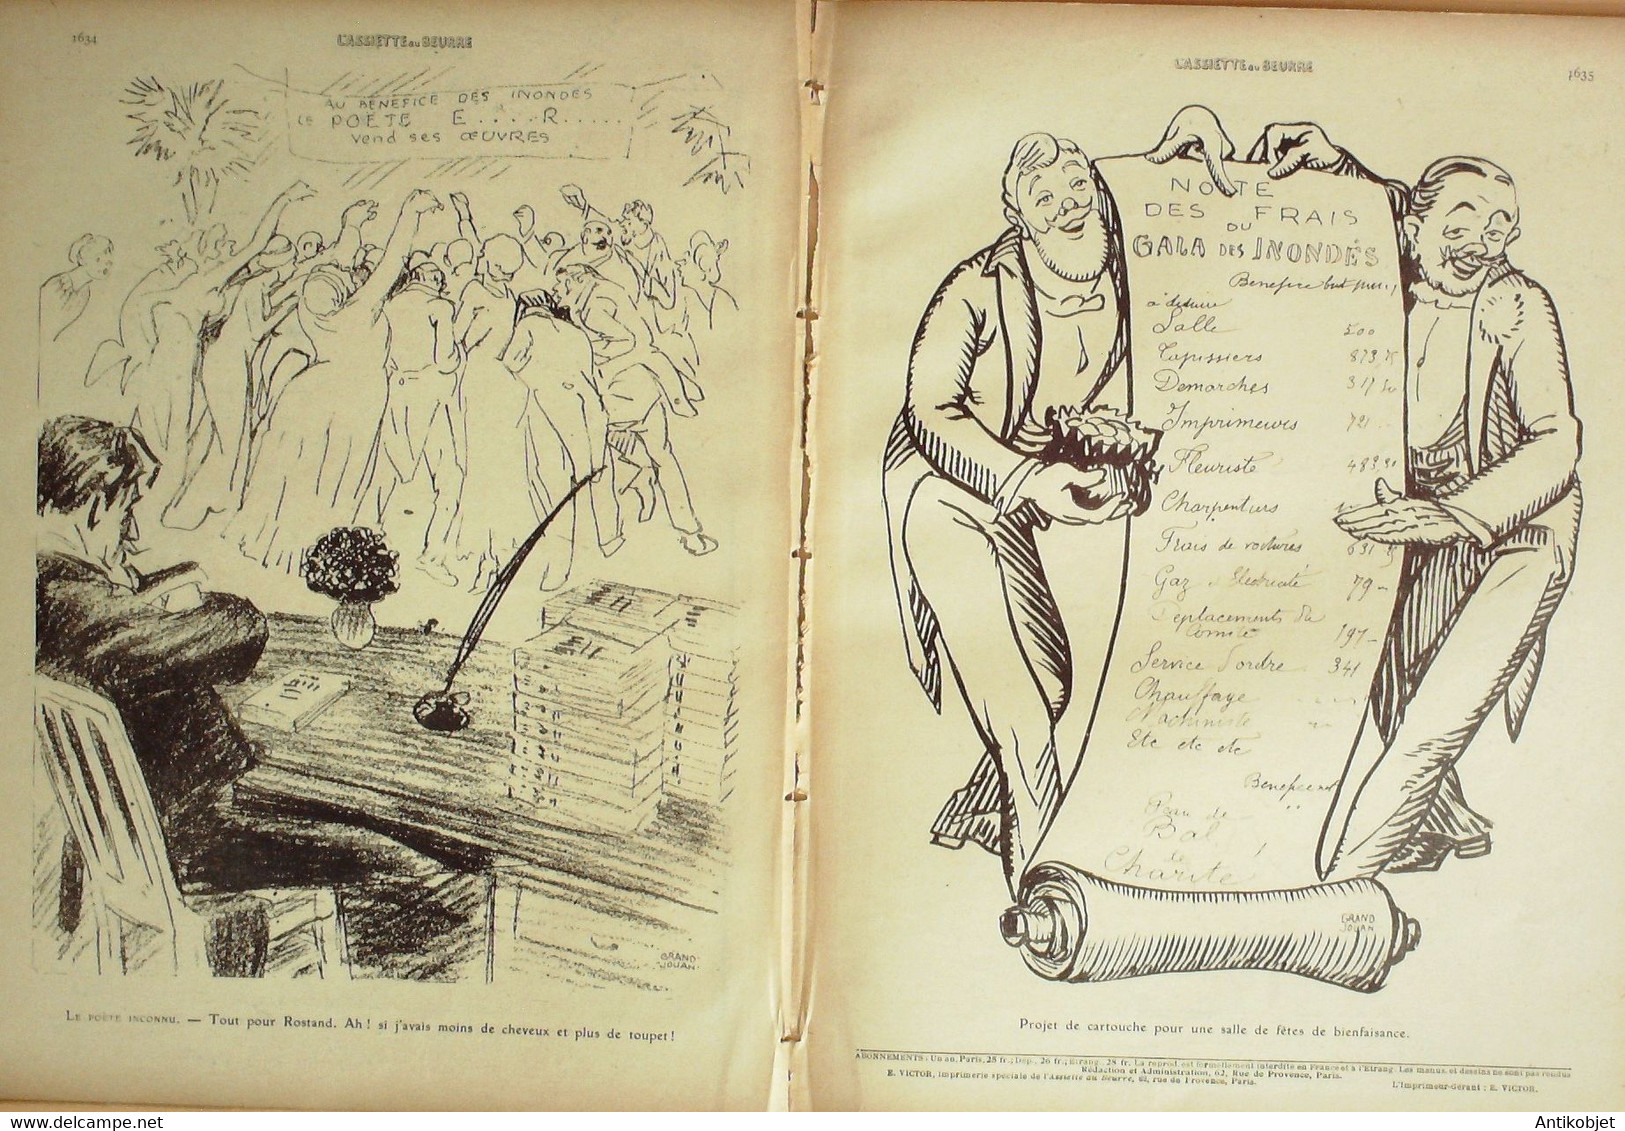 1634
L'ASSIETTE AU BEURRE
AU BENEFICE DES INONDES
LE POETE E....R.....
vend ses ŒUVRES
GRAND
JOUAN
LE POÈTE INCONNU. — Tout pour Rostand. Ah! si j'avais moins de cheveux et plus de toupet!
L'ASSIETTE AU BEURRE
1635
NOTE
DES FRAIS
DU
GALA DES INONDÉS
Benefice but
à déduire
Salle 500
Tapissiers 873,75
Demarches 317 50
Imprimeurs 721
Fleuriste 483,90
Charpentiers
Frais de voitures 631
Gaz Electricité 79 -
Deplacements du
Comité 197 -
Service d'ordre 341
Chauffage
Machiniste
Etc etc etc
Benefice net
Peau de
Bal
de
Charité!
GRAND
JOUAN
Projet de cartouche pour une salle de fêtes de bienfaisance.
ABONNEMENTS : Un an, Paris, 25 fr.; Dép., 26 fr.; Etrang. 28 fr. La reprod. est formellement interdite en France et à l'Etrang. Les manus. et dessins ne sont pas rendus
Rédaction et Administration, 62, Rue de Provence, Paris.
E. VICTOR, imprimerie spéciale de l'Assiette au Beurre, 62, rue de Provence, Paris.
L'Imprimeur-Gérant : E. VICTOR.
Antikobjet